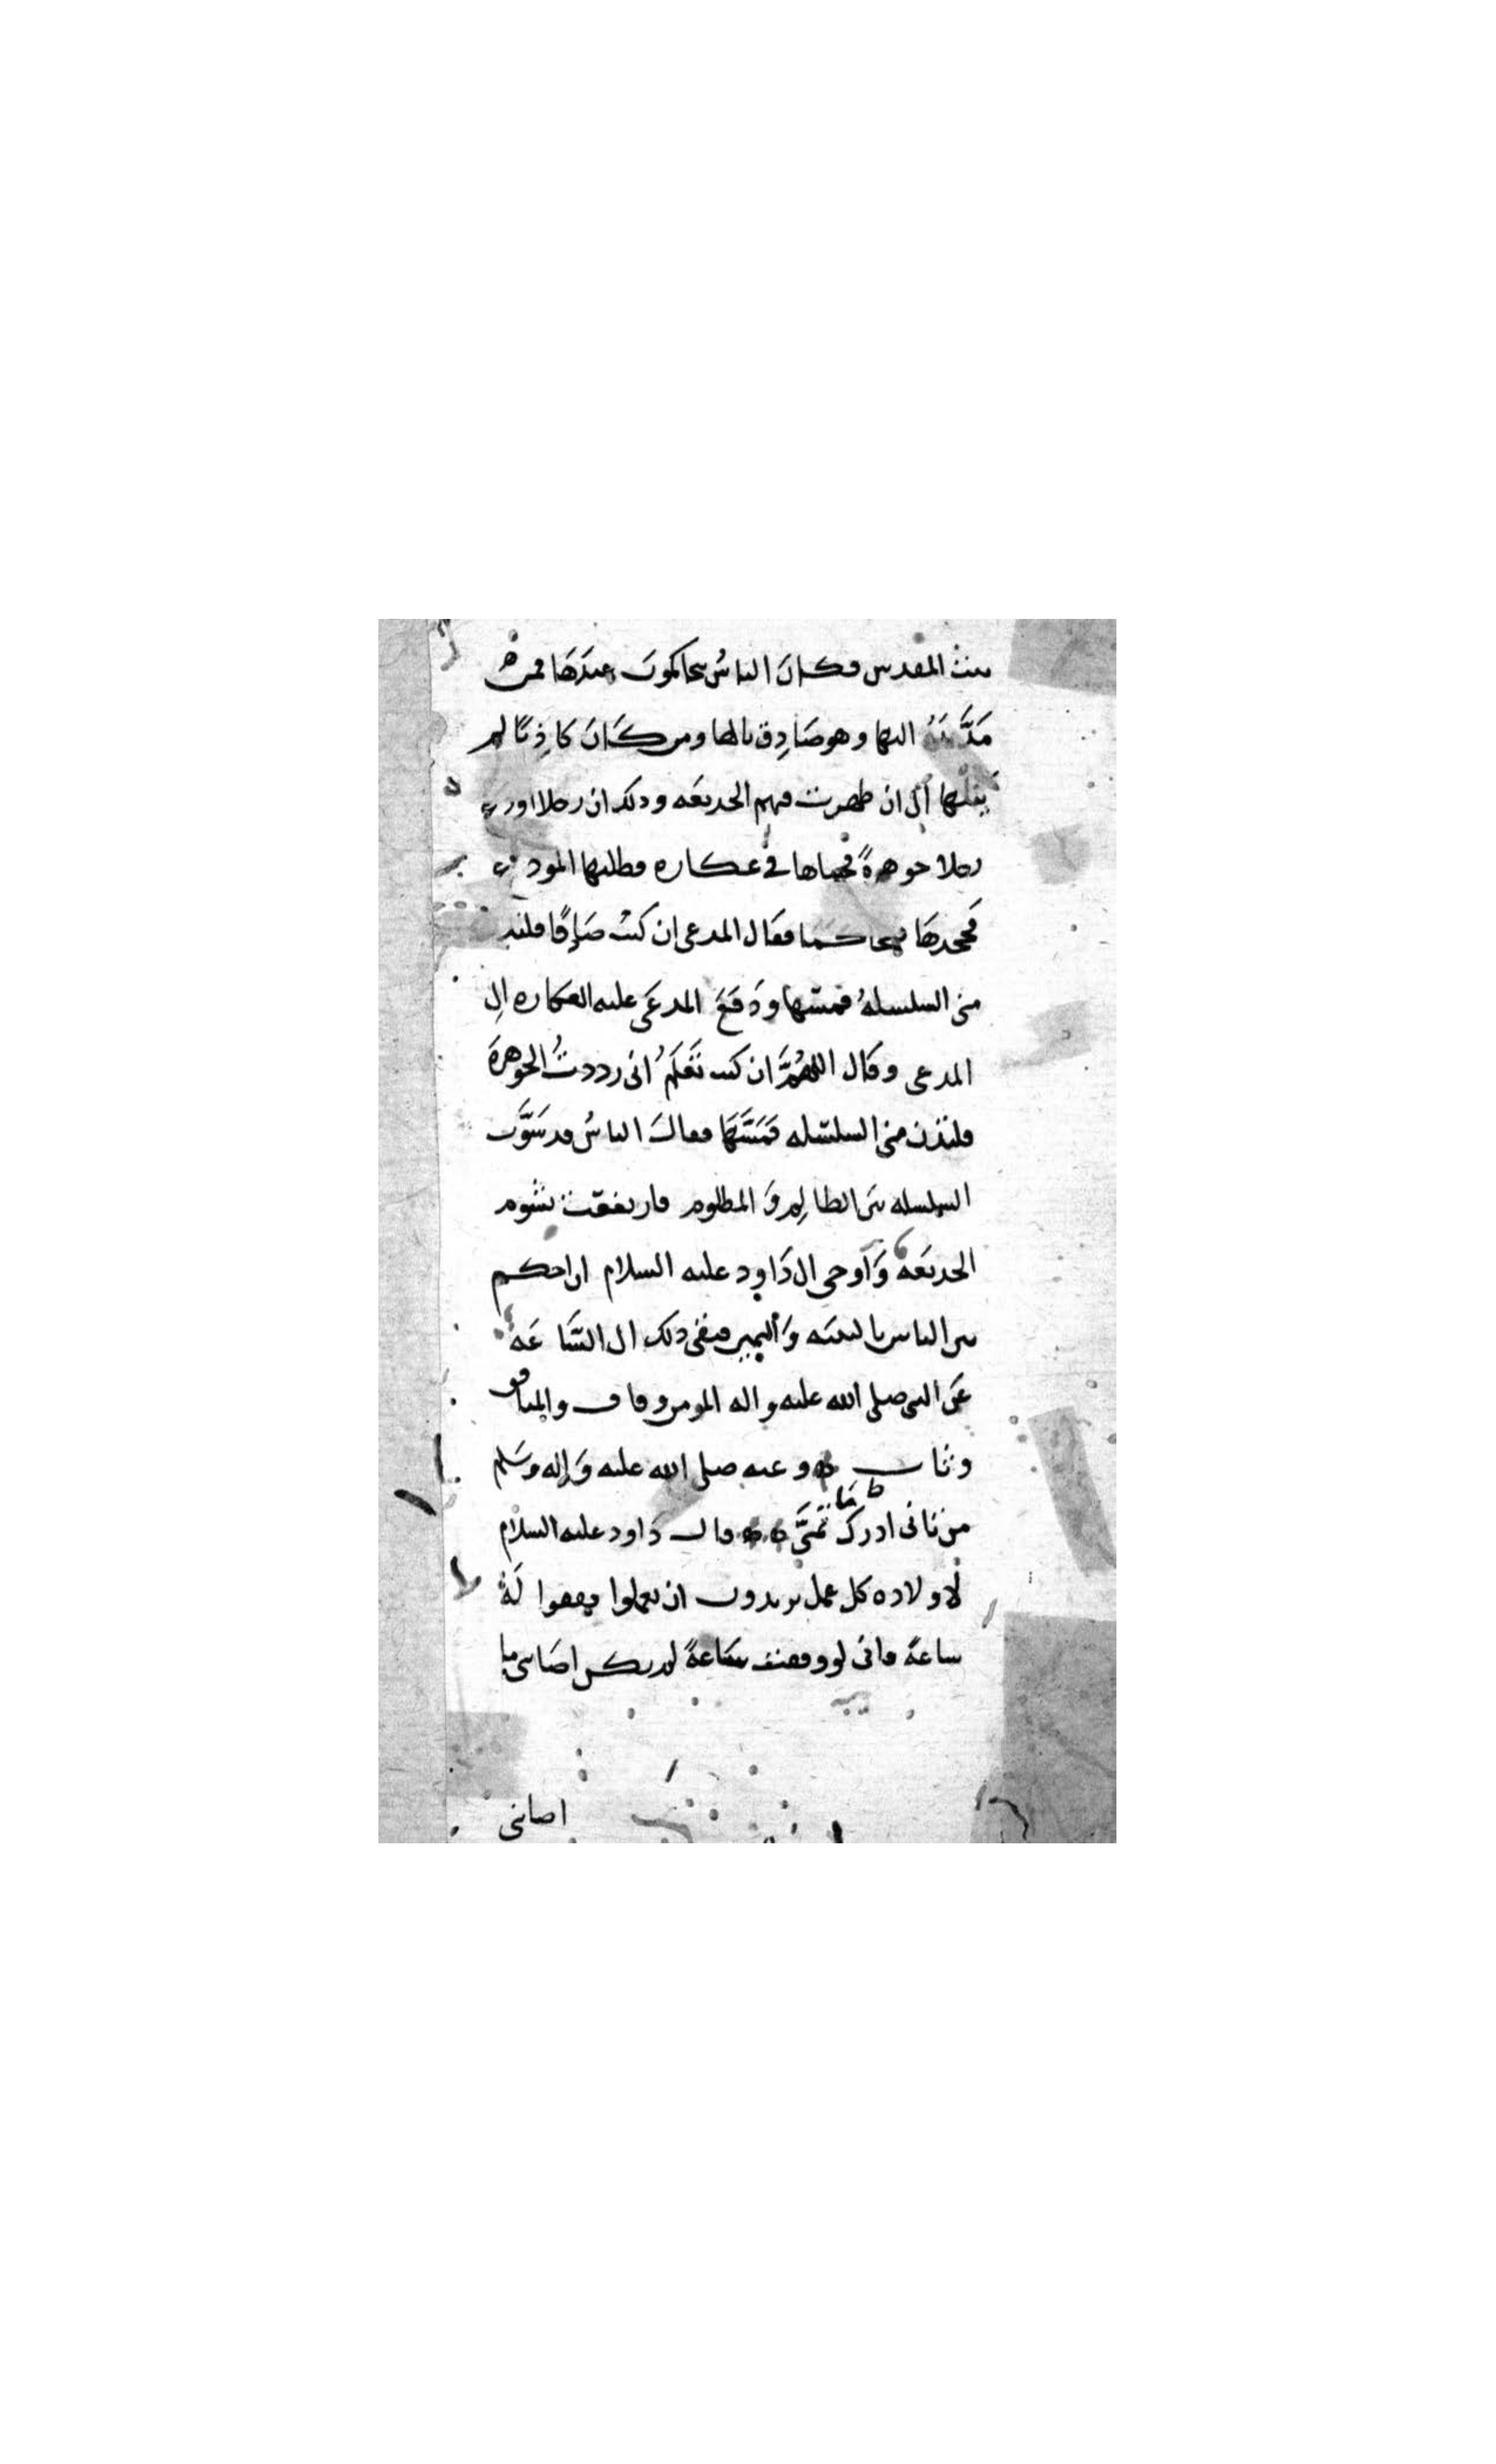 بيت المقدس وكان الناسُ يتحاكمون عندَهَا فمن
مَدَّ يَدَهُ اليها وهو صَادِق نالها ومن كَانَ كَاذِبًا لم
ينلها الى ان ظهرت فيهم الخديعه وذلك ان رجلا اودع
رجلا جوهرةً فخباها في عكازه وطلبها المودع
فجحدهَا فتحاكما فقال المدعى ان كنتُ صَادِقًا فلتدن
منى السلسلهُ فمسّها ودَفَعَ المدعَى عليه العكازه الى
المدعى وقال اللهُمَّ ان كنت تَعْلَمُ انى رددتُ الجوهرةَ
فلتدن منى السلسله فمَسَّهَا فقال الناسُ قد سَوَّت
السلسله بين الظالِم وَ المظلوم فارتفعت بشوم
الخديعه وَاوحى الى دَاود عليه السلام ان احكم
بين الناس بالبينه وَاليمين فبقى ذلك الى السَّاعَه
عَن النبى صلى الله عليه واله المومن وقاف والمنافق
وثاب وعنه صلى الله عليه وَاله وسَلم
من تانى ادرك مَا تمنَّى قال دَاود عليه السلام
لاولاده كل عمل تريدون ان تعملوا فقفوا لَهُ
ساعةً فانى لو وقفت سَاعةً لم يكن اصَابنى ما
اصابنى